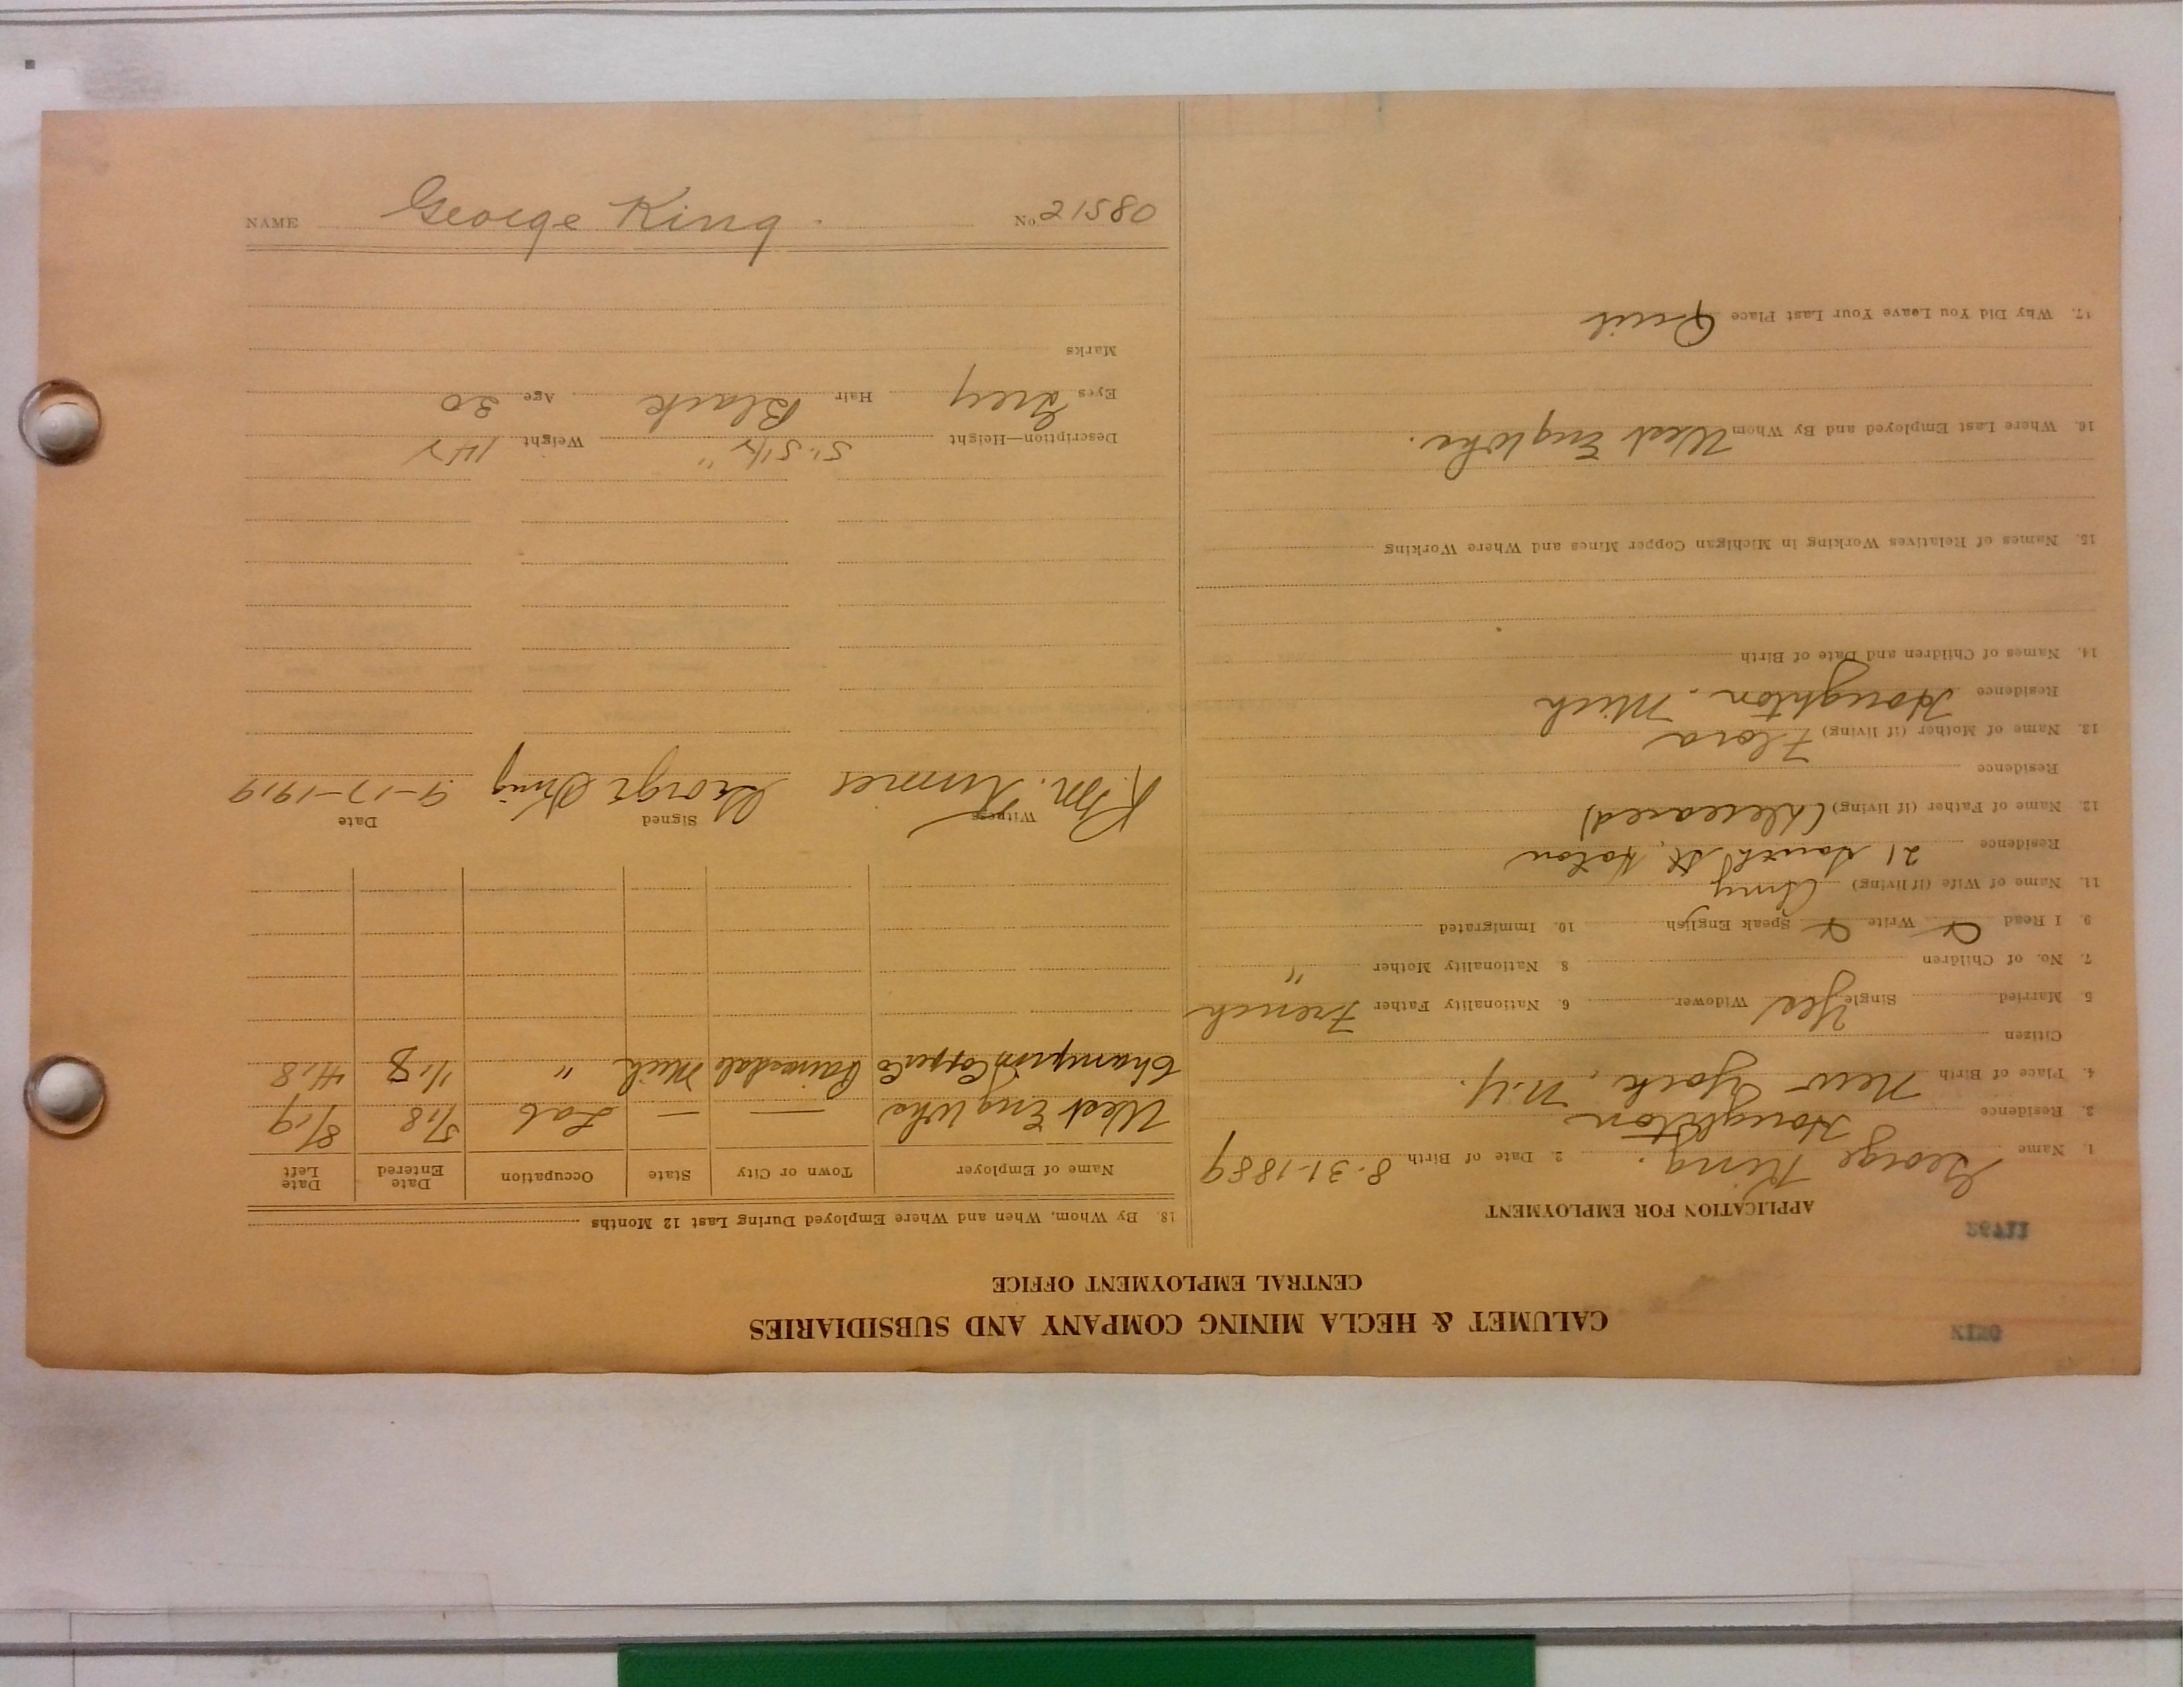 CALUMET & HECLA MINING COMPANY AND SUBSIDIARIES
CENTRAL EMPLOYMENT OFFICE
APPLICATION FOR EMPLOYMENT
1. Name George King. 2. Date of Birth 8-31-1889
3. Residence Houghton
4. Place of Birth New York, N.Y.
Citizen
5 Married Single Yes Widower 6. Nationality Father French
7. No. of Children 8 Nationality Mother "
9. I Read Write Speak English 10. Immigrated
11. Name of Wife (if living) Amy
Residence 21 South St, Hoton
12. Name of Father (if living) (Deceased)
Residence
13. Name of Mother (if living) Flora
Residence Houghton. Mich
14. Names of Children and Date of Birth
15. Names of Relatives Working in Michigan Copper Mines and Where Working
16. Where Last Employed and By Whom West Eng Wke.
17. Why Did You Leave Your Last Place Quit
18. By Whom, When and Where Employed During Last 12 Months
Name of Employer Town or City State Occupation Date Entered Date Left
West Eng Wke — — Lab 5/18 8/19
Champion Copper Co Painesdale Mich " 1/18 4/18
Witness Signed Date
George King 9-17-1919
Description—Height 5'.5 1/2" Weight 142
Eyes Grey Hair Black Age 30
Marks
NAME George King. No. 21580